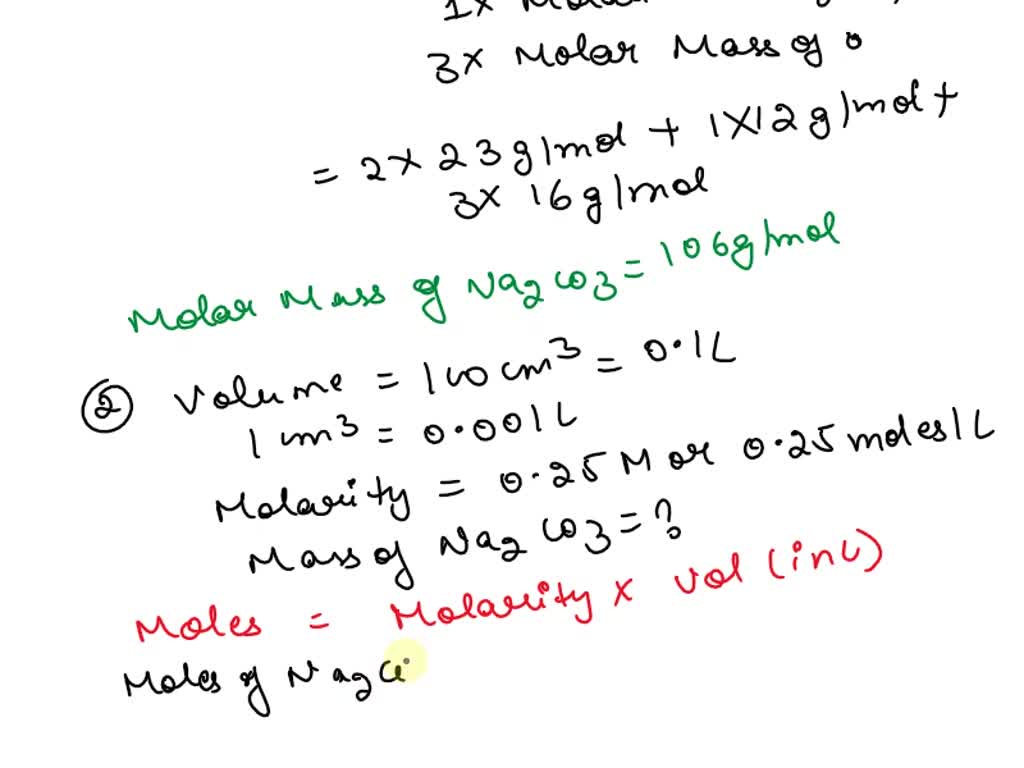 1x Molar
3x Molar Mass of o
= 2x 23g/mol + 1X12g/mol +
3x 16g/mol
Molar Mass of Na2CO3 = 106g/mol
② Volume = 100cm3 = 0.1L
1 cm3 = 0.001L
Molarity = 0.25M or 0.25 moles/L
Mass of Na2CO3 = ?
Moles = Molarity x Vol (in L)
Moles of Na2C